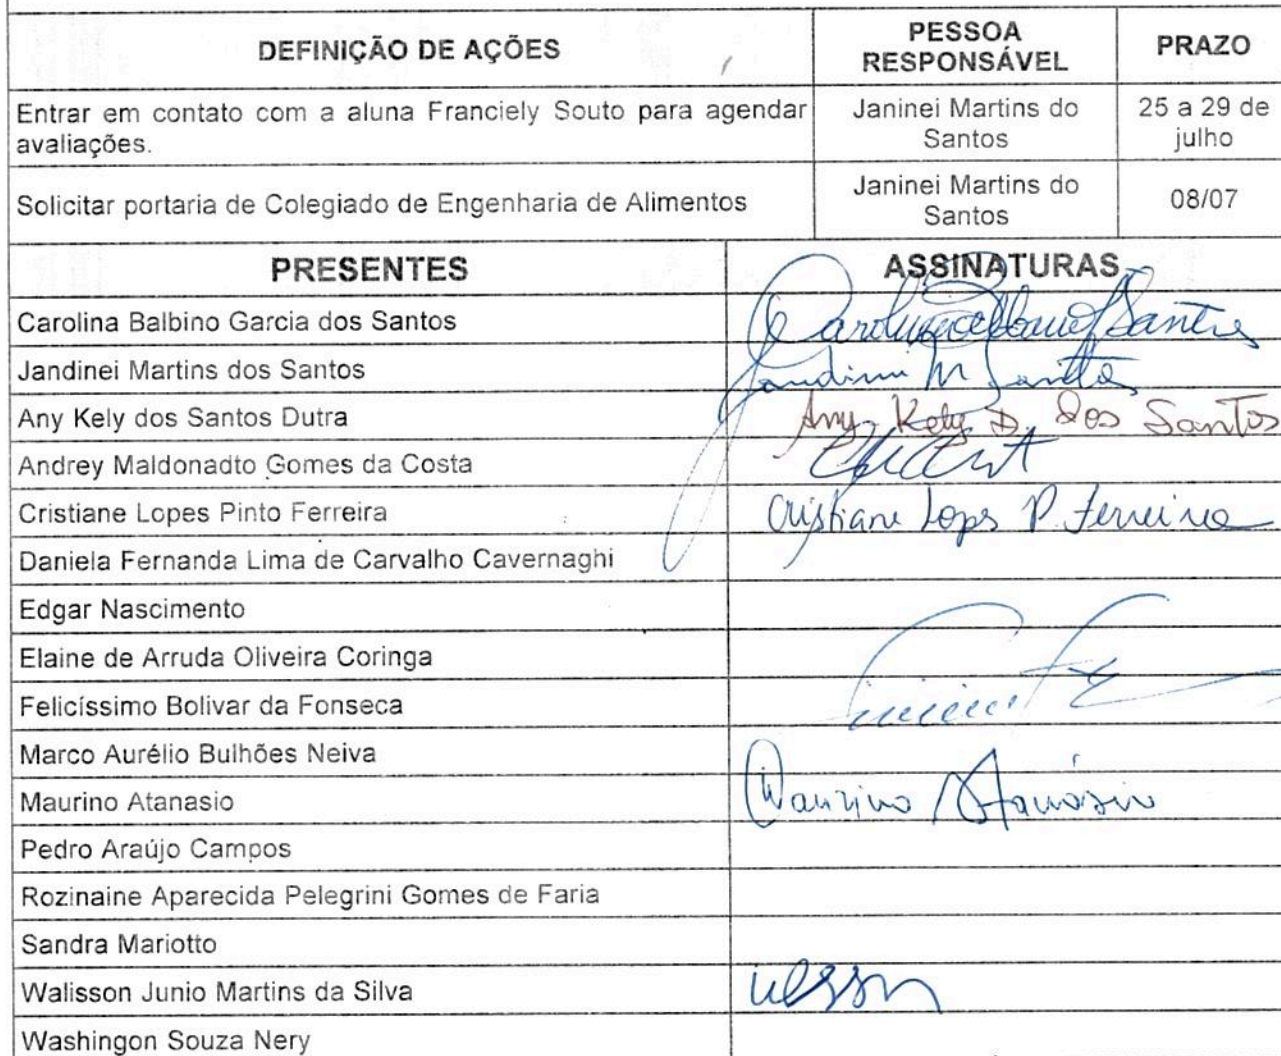 DEFINIÇÃO DE AÇÕES
PESSOA
RESPONSÁVEL
PRAZO
Entrar em contato com a aluna Franciely Souto para agendar
avaliações.
Janinei Martins do
Santos
25 a 29 de
julho
Solicitar portaria de Colegiado de Engenharia de Alimentos
Janinei Martins do
Santos
08/07
PRESENTES
ASSINATURAS
Carolina Balbino Garcia dos Santos
Santos
Jandinei Martins dos Santos
Jandinei M Santos
Any Kely dos Santos Dutra
Any Kely D. dos Santos
Andrey Maldonadto Gomes da Costa
Cristiane Lopes Pinto Ferreira
Cristiane Lopes P. Ferreira
Daniela Fernanda Lima de Carvalho Cavernaghi
Edgar Nascimento
Elaine de Arruda Oliveira Coringa
Felicíssimo Bolivar da Fonseca
Marco Aurélio Bulhões Neiva
Maurino Atanasio
Maurino Atanásio
Pedro Araújo Campos
Rozinaine Aparecida Pelegrini Gomes de Faria
Sandra Mariotto
Walisson Junio Martins da Silva
Washingon Souza Nery